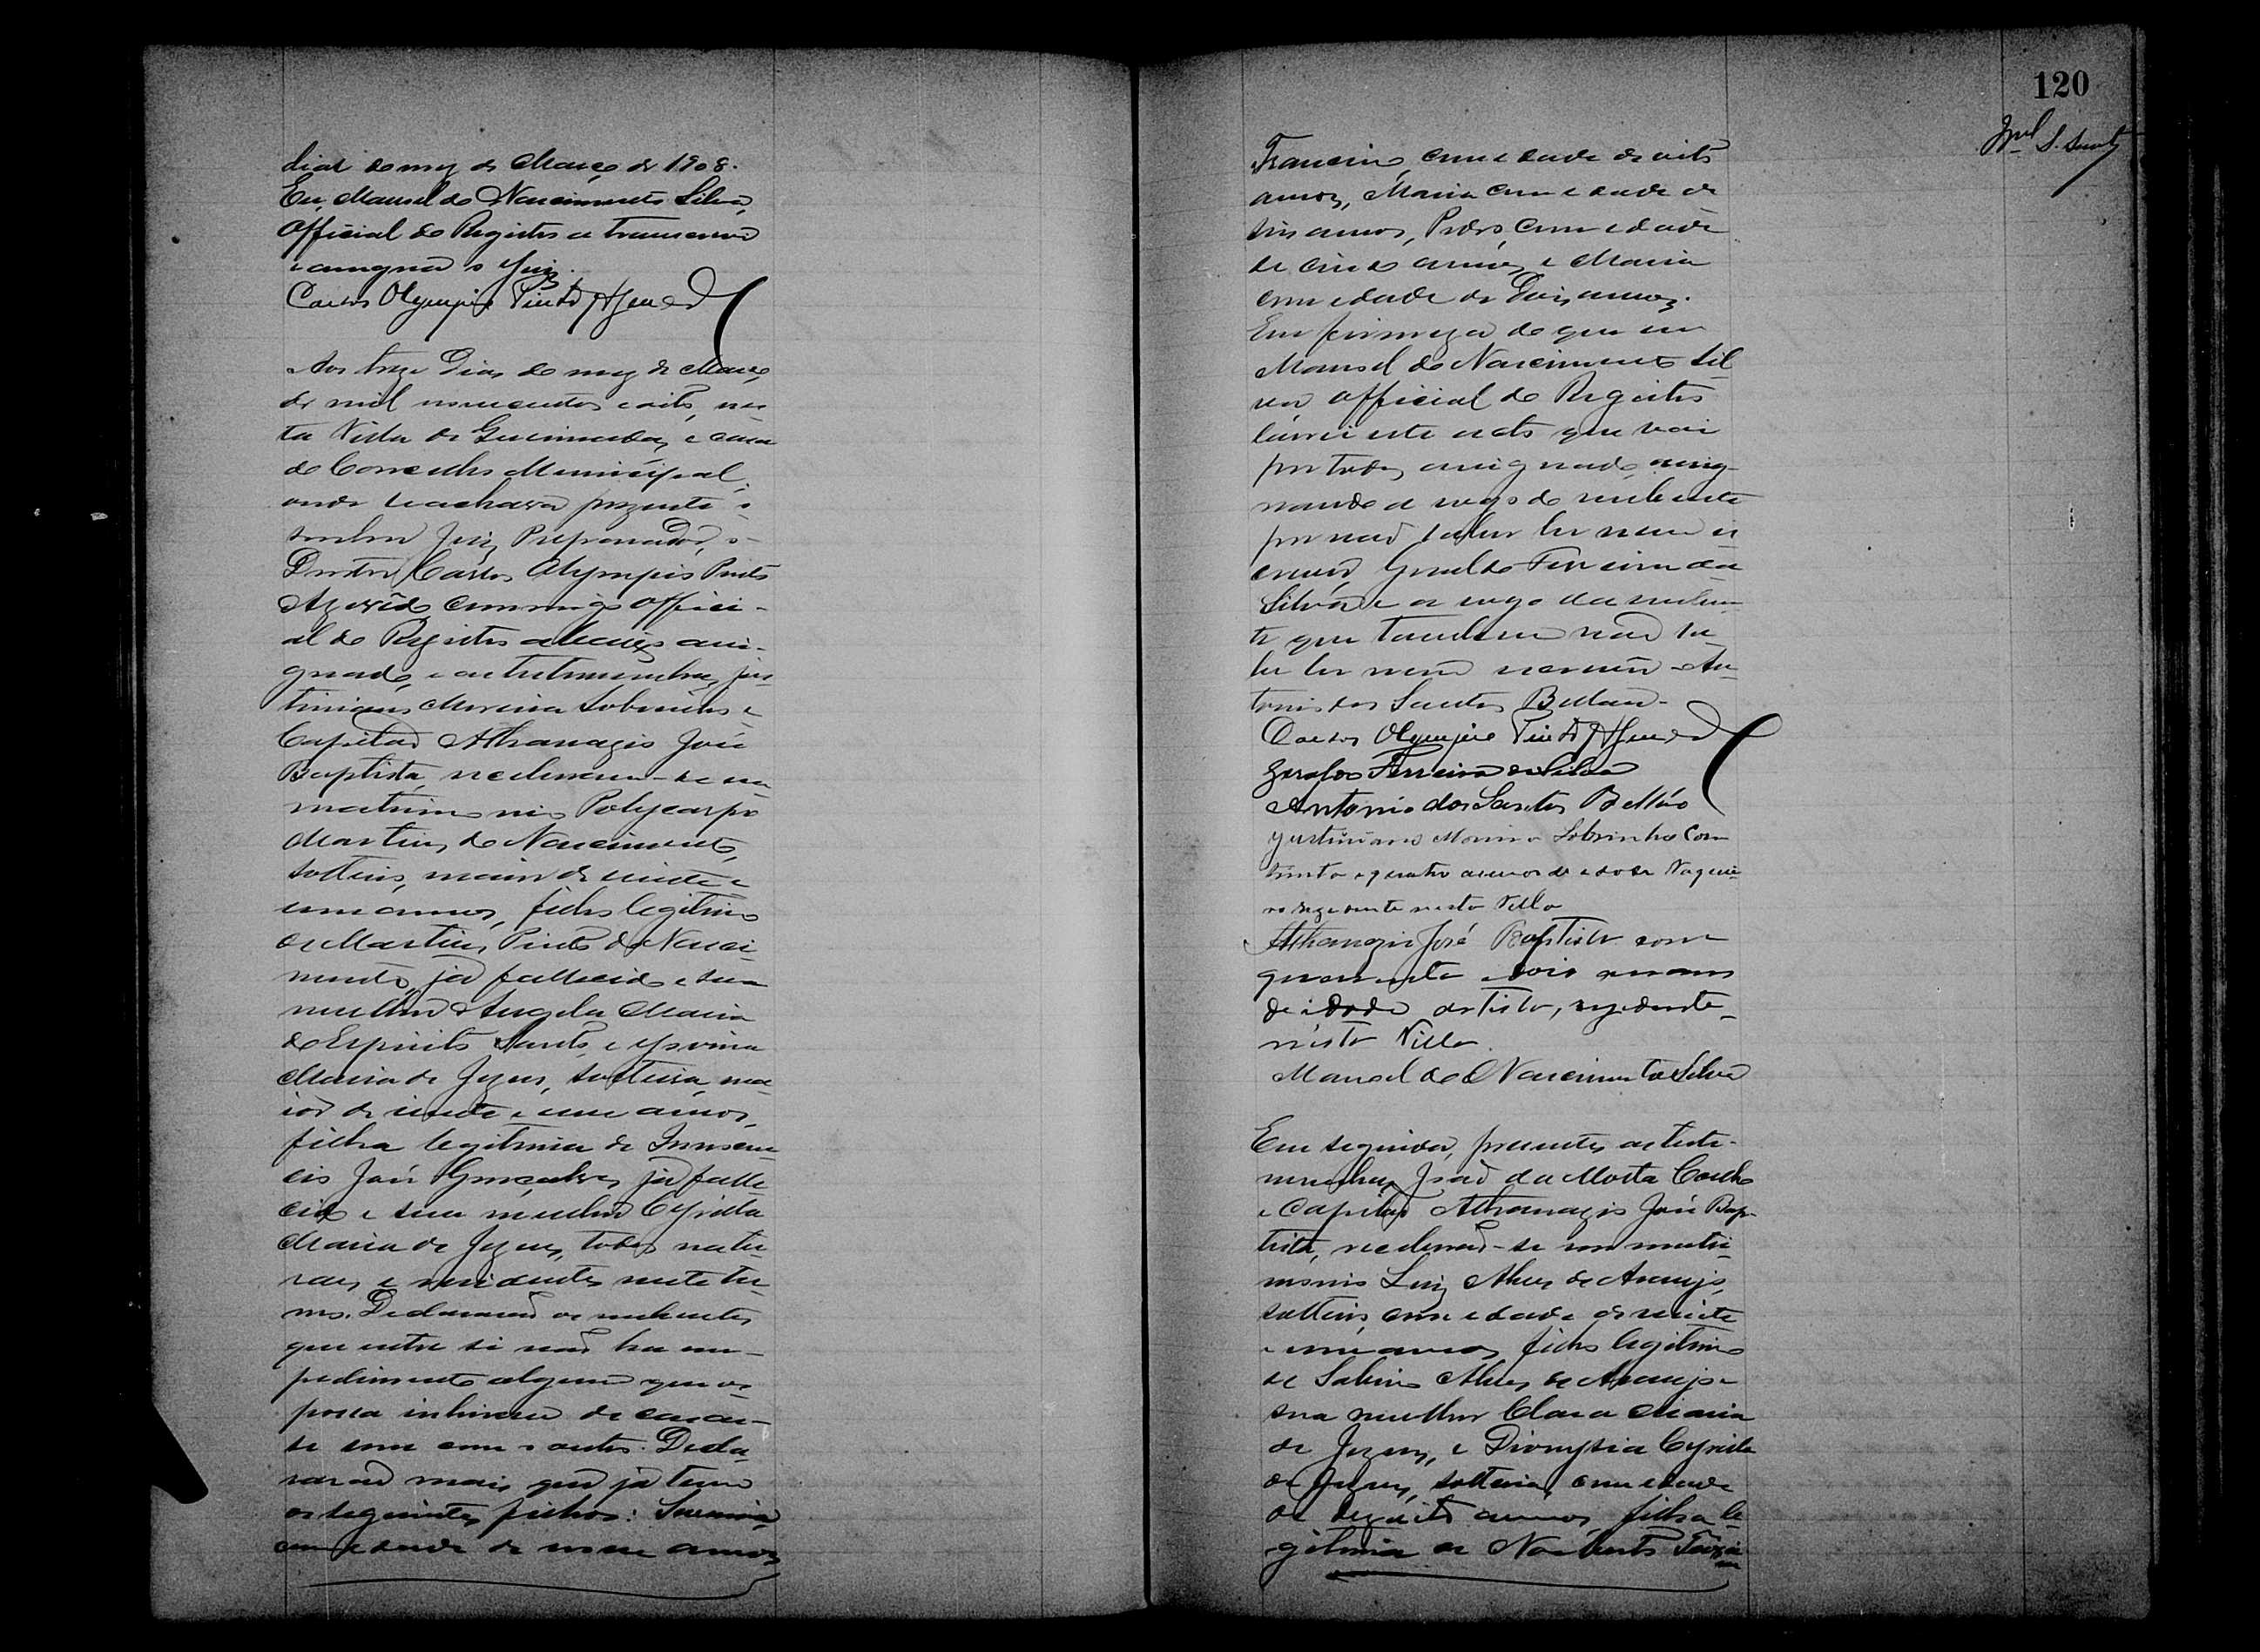 dias do mez de Março de 1908.
Eu, Manoel do Nascimento Silva,
Official do Registro a transcrevi
e assignão o Juiz.
Carlos Olympio Pinto d'Azevedo
Aos treze dias do mez de Março
de mil novecentos e oito, nes-
ta Villa de Queimadas, e casa
do Conselho Municipal,
onde se achava prezente o
senhor Juiz Preparador, o
Doutor Carlos Olympio Pinto
Azevêdo commigo Offici-
al do Registro abaixo assi-
gnado, e as testemunhas, Jus-
tiniano Moreira Sobrinho e
Capitão Athanazio José
Baptista, receberam-se em
matrimonio Polycarpo
Martins do Nascimento,
solteiro, maior de vinte e
um annos, filho legitimo
de Martins Pinto do Nasci-
mento, já fallecido e sua
mulher Angela Maria
do Espirito Santo, e
Maria de Jezus, solteira, ma-
ior de vinte e um annos,
filha legitima de Innocen-
cio José Gonçalves, já falle-
cido e sua mulher Cyrilla
Maria de Jezus, todos natu-
raes e residentes neste ter-
mo. Declararão os nubentes
que entre si não ha im-
pedimento algum que os
possa inhiver de casar-
se um com o outro. Decla-
rarão mais que já tem
os seguintes filhos:
com edade de nove annos
120
Francino, com edade de oito
annos, Maria com edade de
seis annos, Pedro, com edade
de cinco annos, e Maria
com edade de dois annos.
Em firmeza do que eu
Manoel do Nascimento Sil-
va Official do Registro
lavrei este acto que vai
por todos assignado assig-
nando a rogo do nubente
por não saber ler nem es-
crever, Geraldo Ferreira da
Silva e a rogo da nuben-
te que tambem não sa-
be ler nem escrever An-
tonio dos Santos Bellão
Carlos Olympio Pinto d'Azevedo
Geraldo Ferreira da Silva
Antonio dos Santos Bellão
Justiniano Moreira Sobrinho Com
trinta e quatro annos de edade Vaquei-
ro rezidente nesta Villa
Athanazio José Baptista com
quarenta e dois annos
de idade artista, rezidente
nésta Villa.
Manoel do Nascimento Silva
Em seguida, presentes as teste-
munhas João da Motta Coelho
e Capitão Athanazio José Bap-
tista, receberão-se em matri-
monio Luiz Alves de Araujo,
solteiro, com edade de vinte
e um annos, filho legitimo
de Sabino Alves de Araujo e
sua mulher Clara Maria
de Jezus, e Dionysia Cyrilla
de Jezus, solteira, com edade
de dezoito annos, filha le-
gitima de Norberto